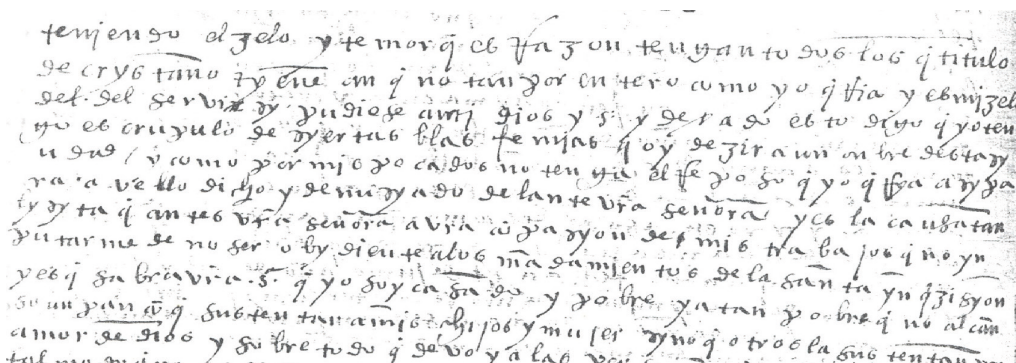 tenjendo el zelo y temor q̃ es rrazon tengan todos los q̃ titulo
de crystãno tyenẽ an q̃ no tan por entero como yo q̃rria y es mi zel
del del servir sy pudiese a mj dios y s.r y desado esto digo q̃ yo ten
go escrupulo de syertas blasfemjas q̃ oy dezir a un onbre desta sy
udad / y como por mis pecados no tenga el rreposo q̃ yo q̃rria asy pa
ra avello dicho y denusyado delante vr̃a señorã y es la causa tan
sysyta q̃ antes vr̃a señorã avra cõpasyon de mis trabajos q̃ no yn
putarme de no ser obydiente a los mãdamientos de la sãnta ynq̃zisyon
y es q̃ sabra vr̃a .s.a q̃ yo soy casãdo y pobre y a tan pobre q̃ no alcan
so un pan cõ q̃ sustentar a mis hijos y mujer syno q̃ otros la sustentan
amor dẽ dios y sobre todo q̃ devo y a las